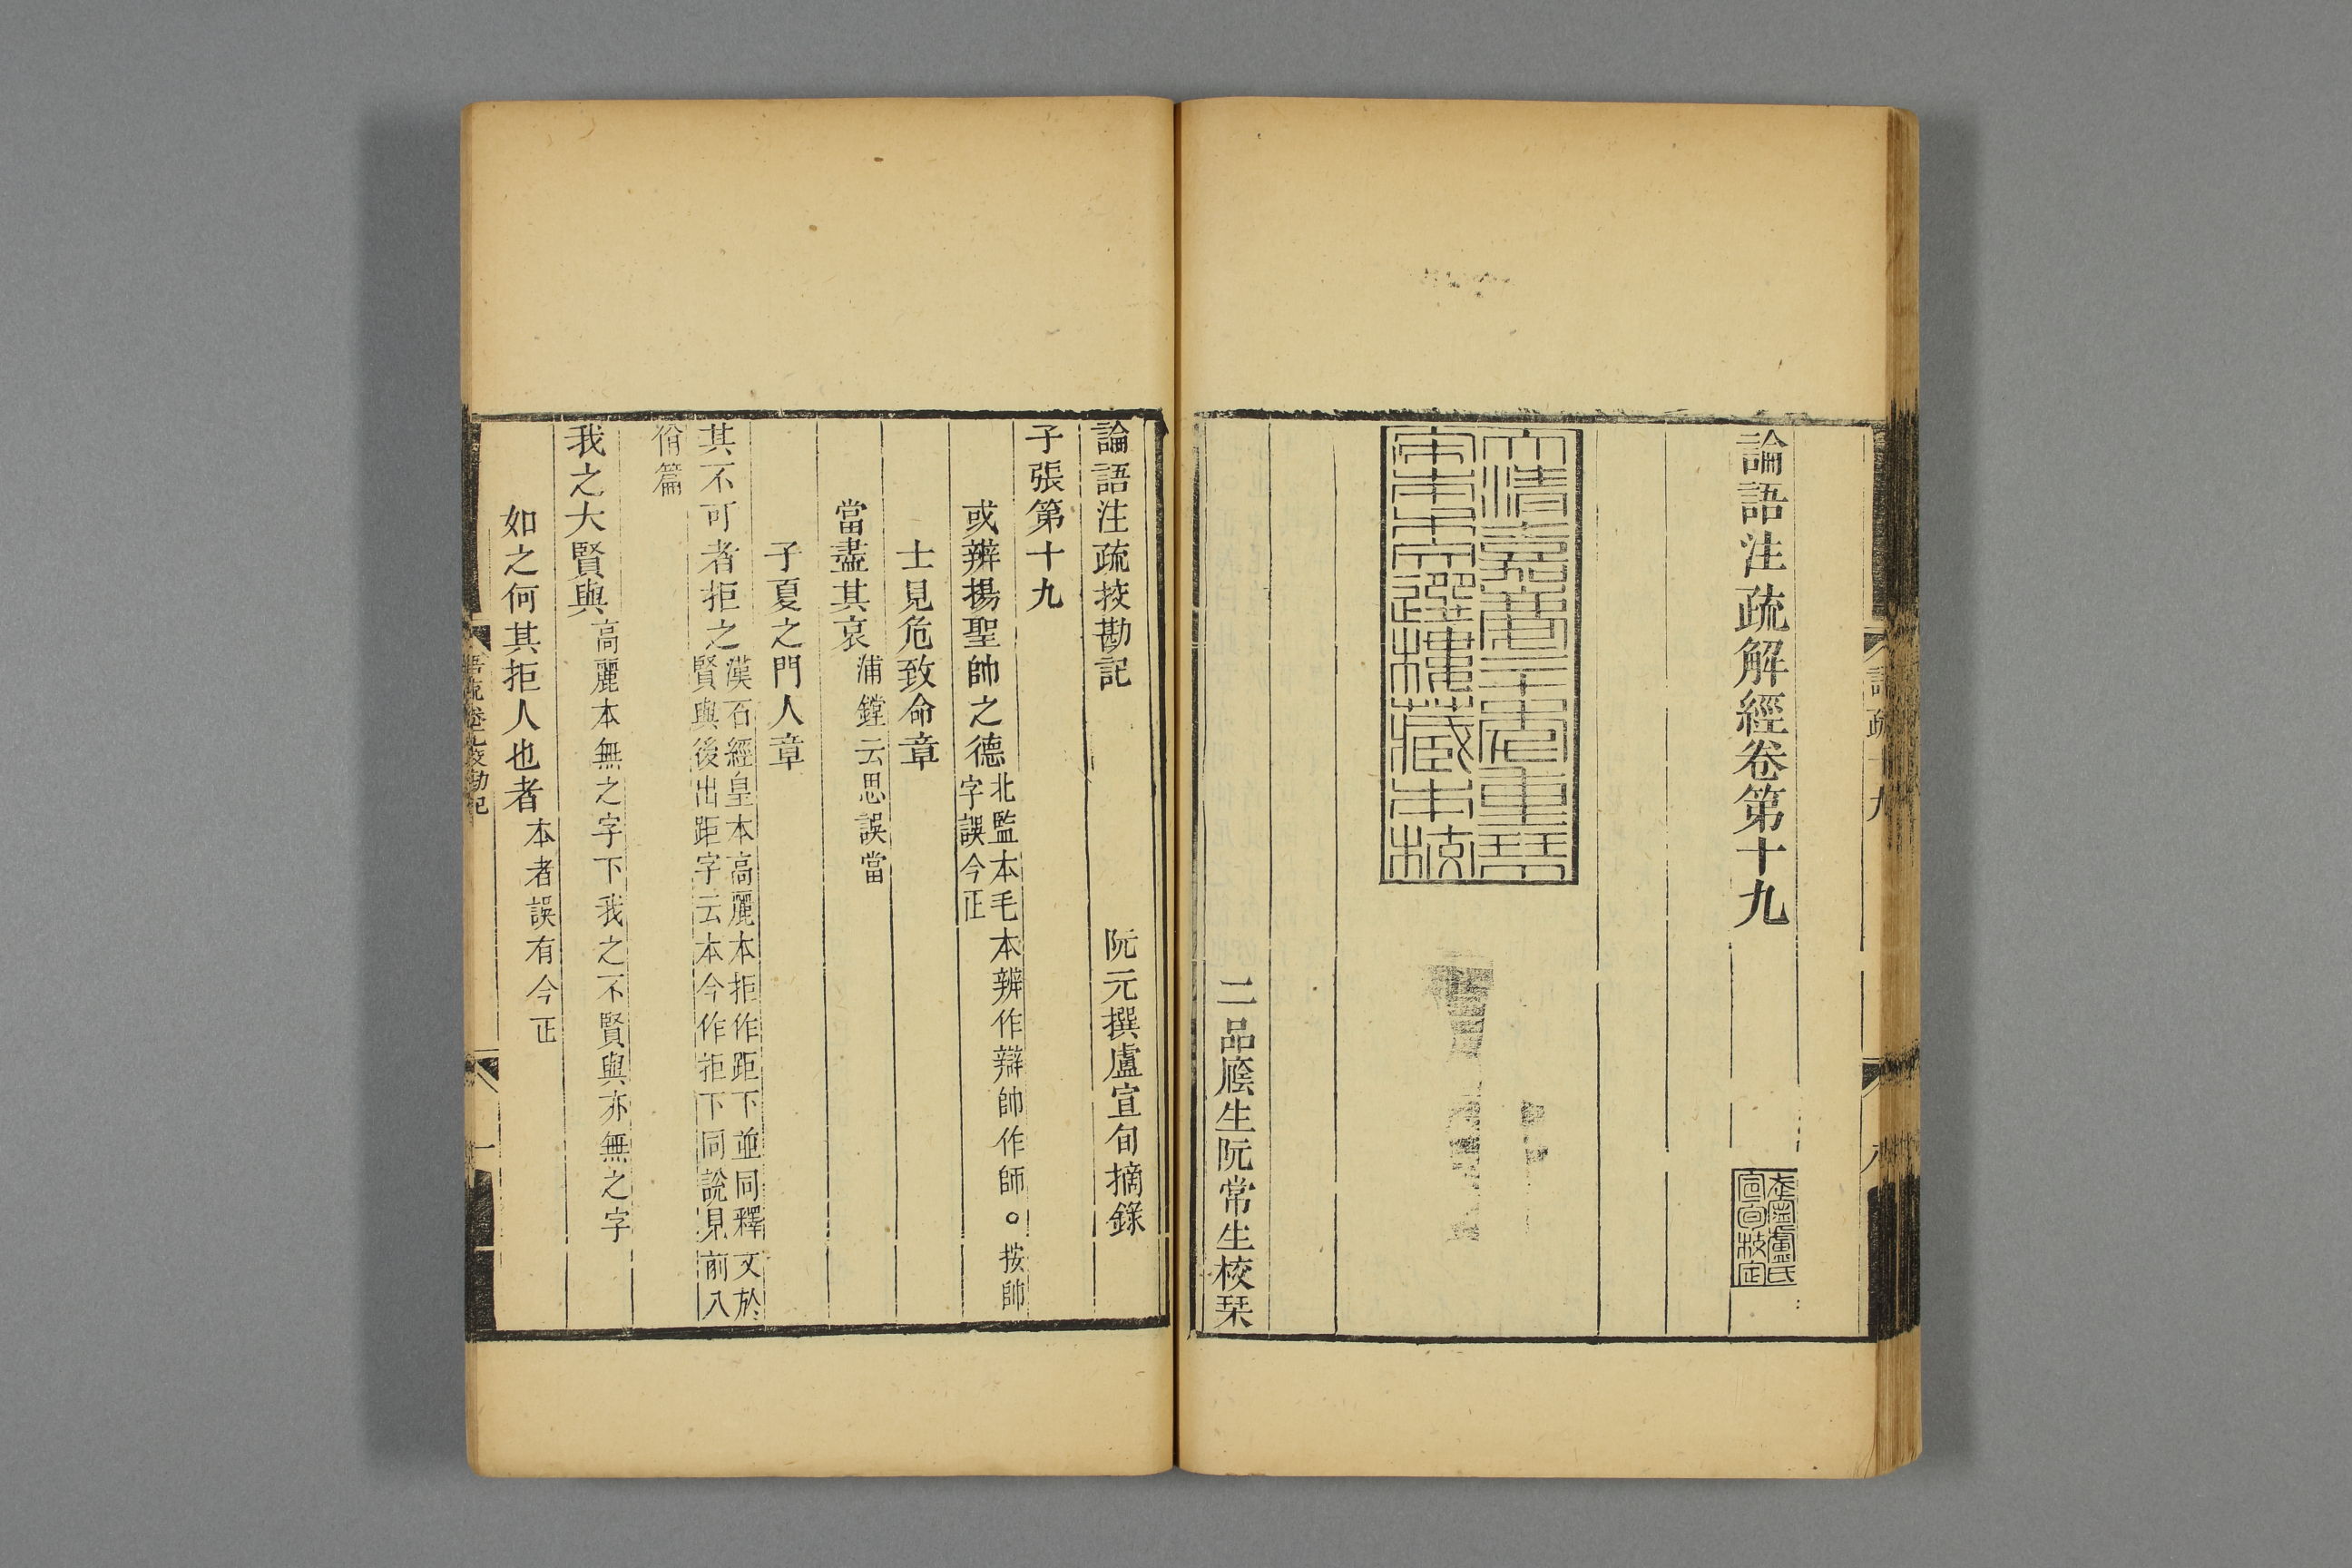 論語注疏解經卷第十九
大清嘉慶二十年重栞
宋本十三經注疏
宋本南昌府學
二品廕生阮常生校栞
論語注疏挍勘記
阮元撰盧宣旬摘錄
子張第十九
或辨揚聖帥之德北監本毛本辨作辯帥作師。按帥
字誤今正
士見危致命章
當盡其哀浦鏜云思誤當
子夏之門人章
其不可者拒之漢石經皇本高麗本拒作距下並同釋文於
賢與後出距字云本今作拒下同說見前八
佾篇
我之大賢與高麗本無之字下我之不賢與亦無之字
如之何其拒人也者本者誤有今正